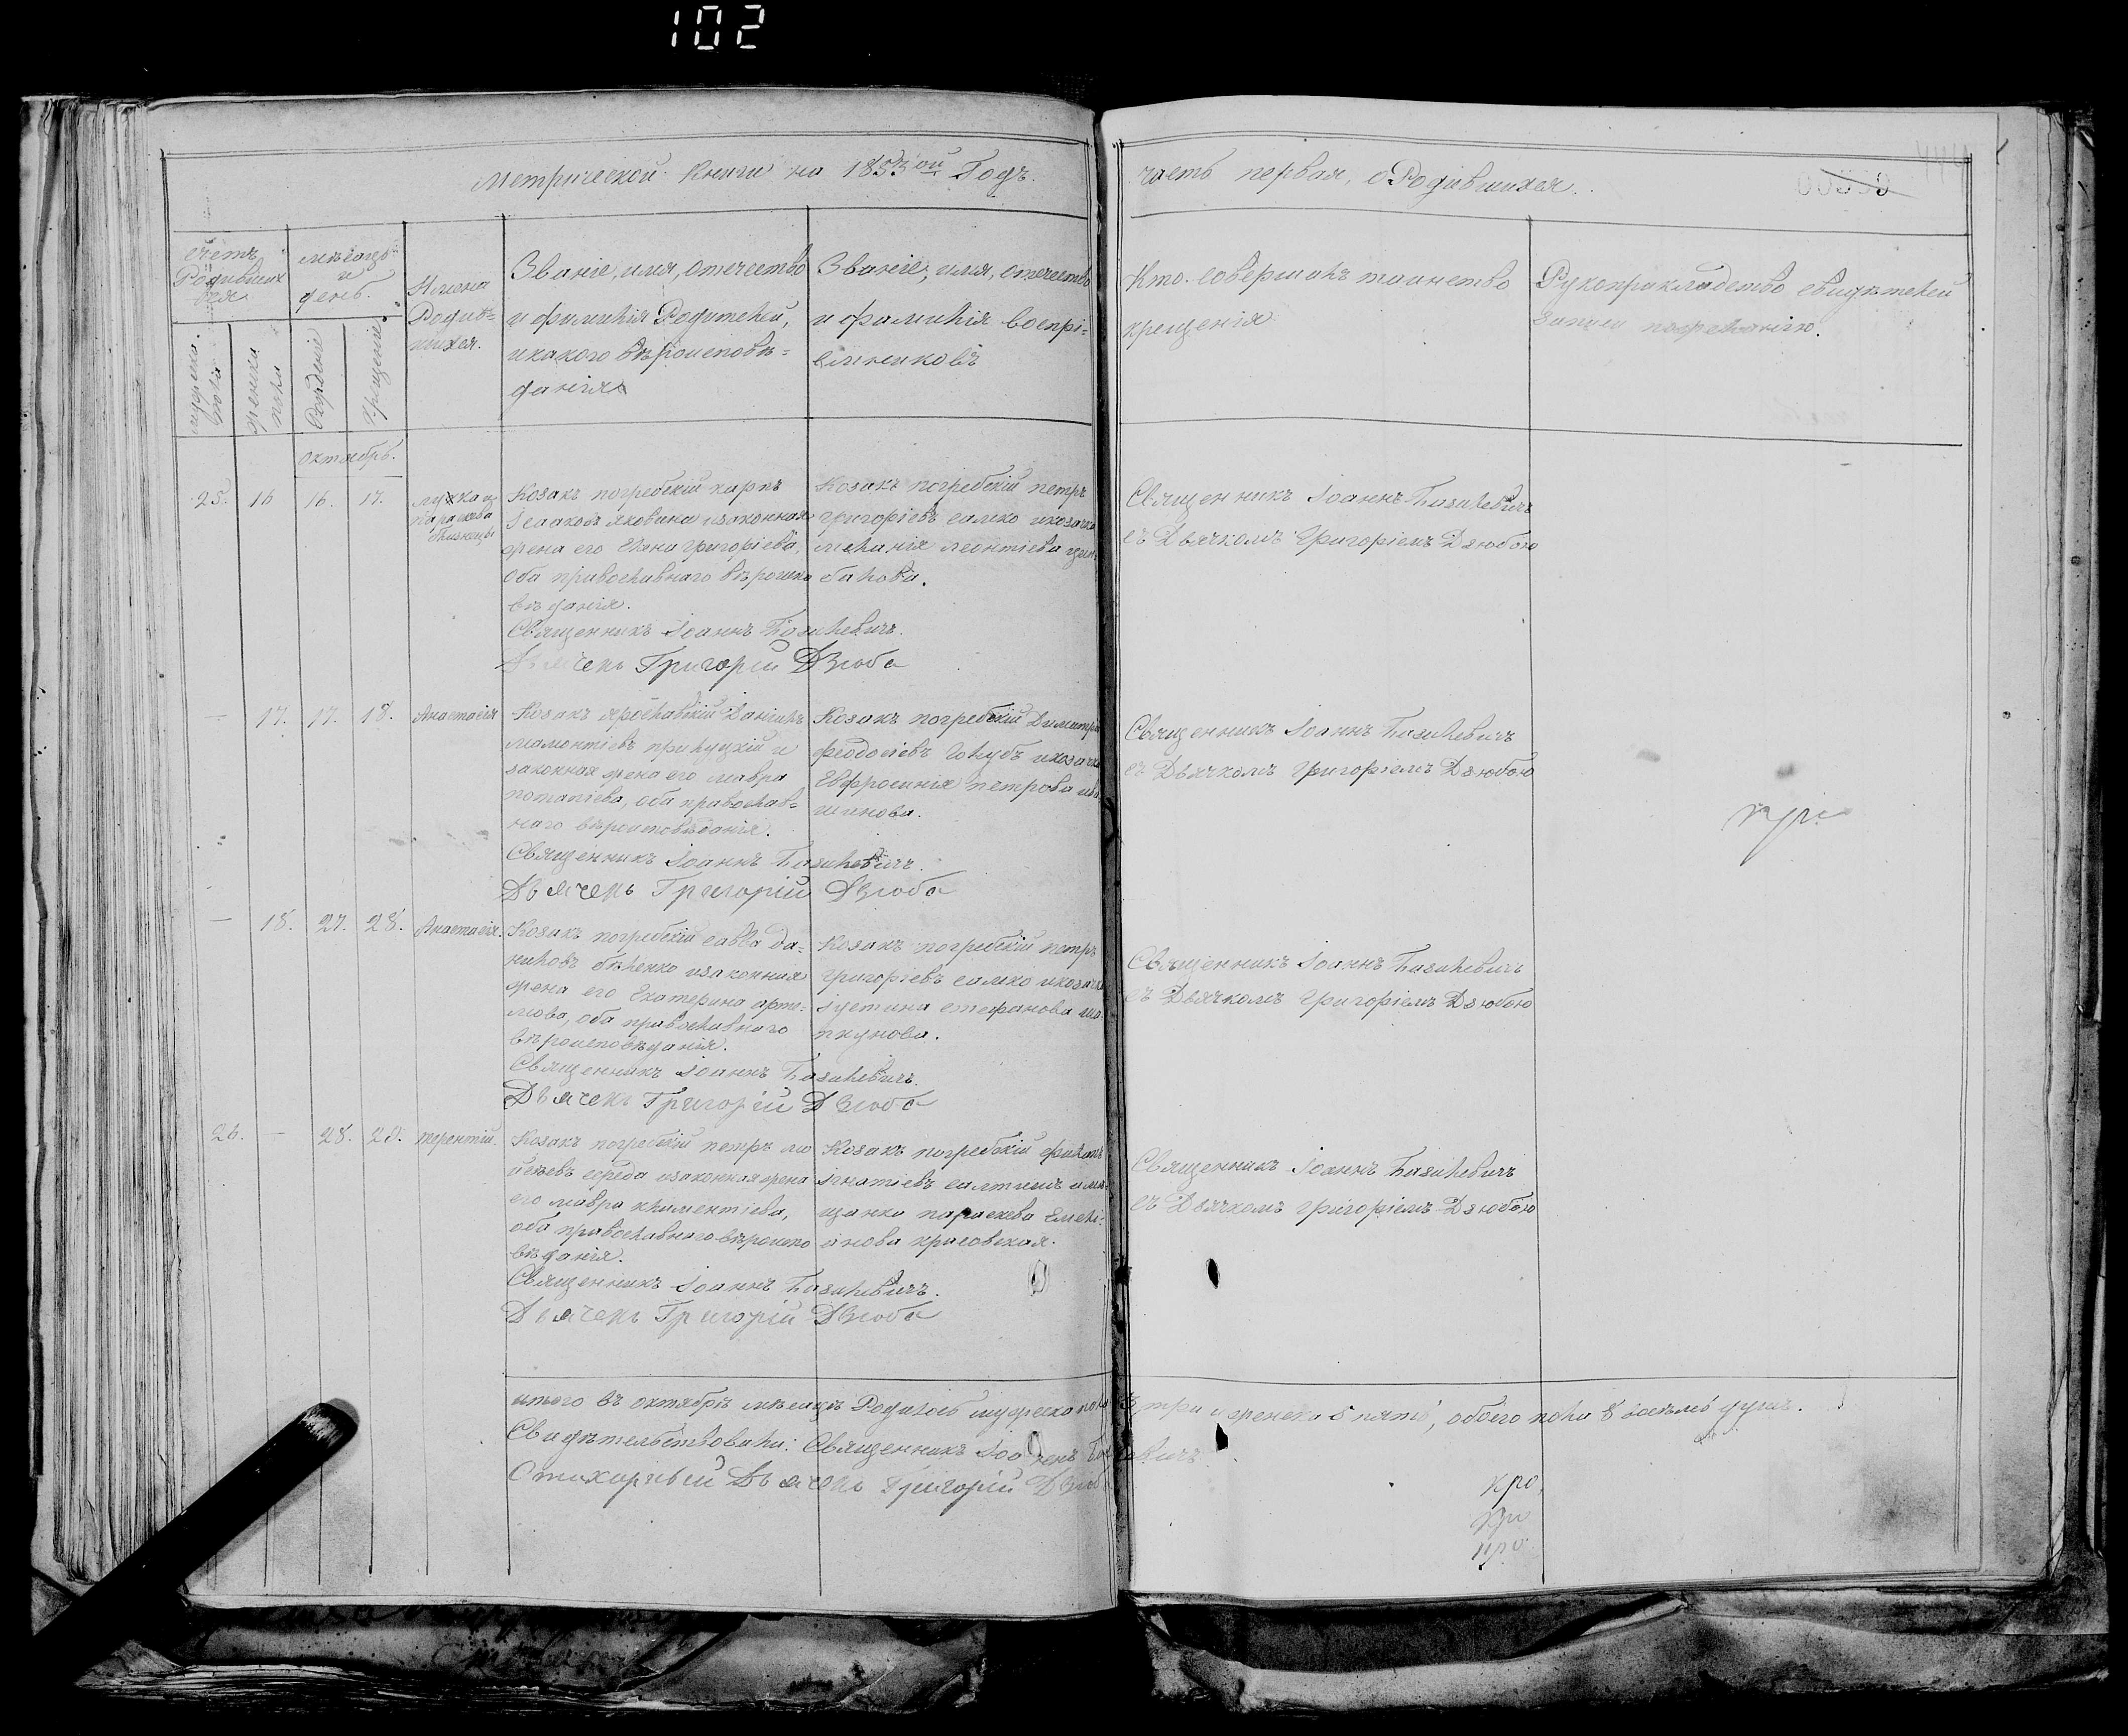 102
Метрической Книги на 1853ой Годъ.
часть первая, о Родившихся.
Счетъ Родившихся
мѣсяцъ и день.
Имена Родившихся.
Званіе, имя, отечество
и фамилія Родителей,
и какого вѣроисповѣ-
данія
Званіе, имя, отечество
и фамилія воспрі-
емниковъ
Кто совершалъ таинство
крещенія
Рукоприкладство свидѣтелей
записи по желанію.
мужеска пола
женска пола
Рожденіе
Крещеніе
октябрь.
25. 16 16. 17.
Лука и
Параскева
близнецы
Козакъ погребскій карпъ
Ісааковъ яковина и законная
жена его Евгенія Григоріева,
оба православнаго вѣроиспо
вѣданія.
Священникъ Іоаннъ Базилевичъ.
Дьячекъ Григорій Дзюба
Козакъ погребскій петръ
григоріевъ салко и козачка
меланія леонтіева цым-
балова.
Священникъ Іоаннъ Базилевичъ
съ Дьячкомъ Григоріемъ Дзюбою
— 17. 17. 18. Анастасія
Козакъ ярославскій Даніилъ
мамонтіевъ прилуцкій и
законная жена его мавра
потапіева, оба православ-
наго вѣроисповѣданія.
Священникъ Іоаннъ Базилевичъ.
Дьячекъ Григорій Дзюба
Козакъ погребскій Димитрій
феодосіевъ Голубъ и козачка
Евфросинія петрова
шинова.
Священникъ Іоаннъ Базилевичъ
съ Дьячкомъ Григоріемъ Дзюбою
— 18. 27. 28. Анастасія.
Козакъ погребскій савва да-
ниловъ бѣленко и законная
жена его Екатерина арте-
мова, оба православнаго
вѣроисповѣданія.
Священникъ Іоаннъ Базилевичъ.
Дьячекъ Григорій Дзюба
Козакъ погребскій петръ
григоріевъ салко и козачка
іустина стефанова ша-
пкунова.
Священникъ Іоаннъ Базилевичъ
съ Дьячкомъ Григоріемъ Дзюбою
26. — 28. 29. терентій.
Козакъ погребскій петръ мо
исеевъ середа и законная жена
его мавра климентіева,
оба православнаго вѣроиспо
вѣданія.
Священникъ Іоаннъ Базилевичъ.
Дьячекъ Григорій Дзюба
Козакъ погребскій филипъ
игнатіевъ салтишъ и мѣ-
щанка параскева Емелі-
анова красовская.
Священникъ Іоаннъ Базилевичъ
съ Дьячкомъ Григоріемъ Дзюбою
итого въ октябрѣ мѣсяцѣ Родилось мужеска пола 3 три женска 5 пять, обоего пола 8 восемь душъ.
Свидѣтельствовали: Священникъ Іоаннъ Базилевичъ.
Стихарный Дьячекъ Григорій Дзюба